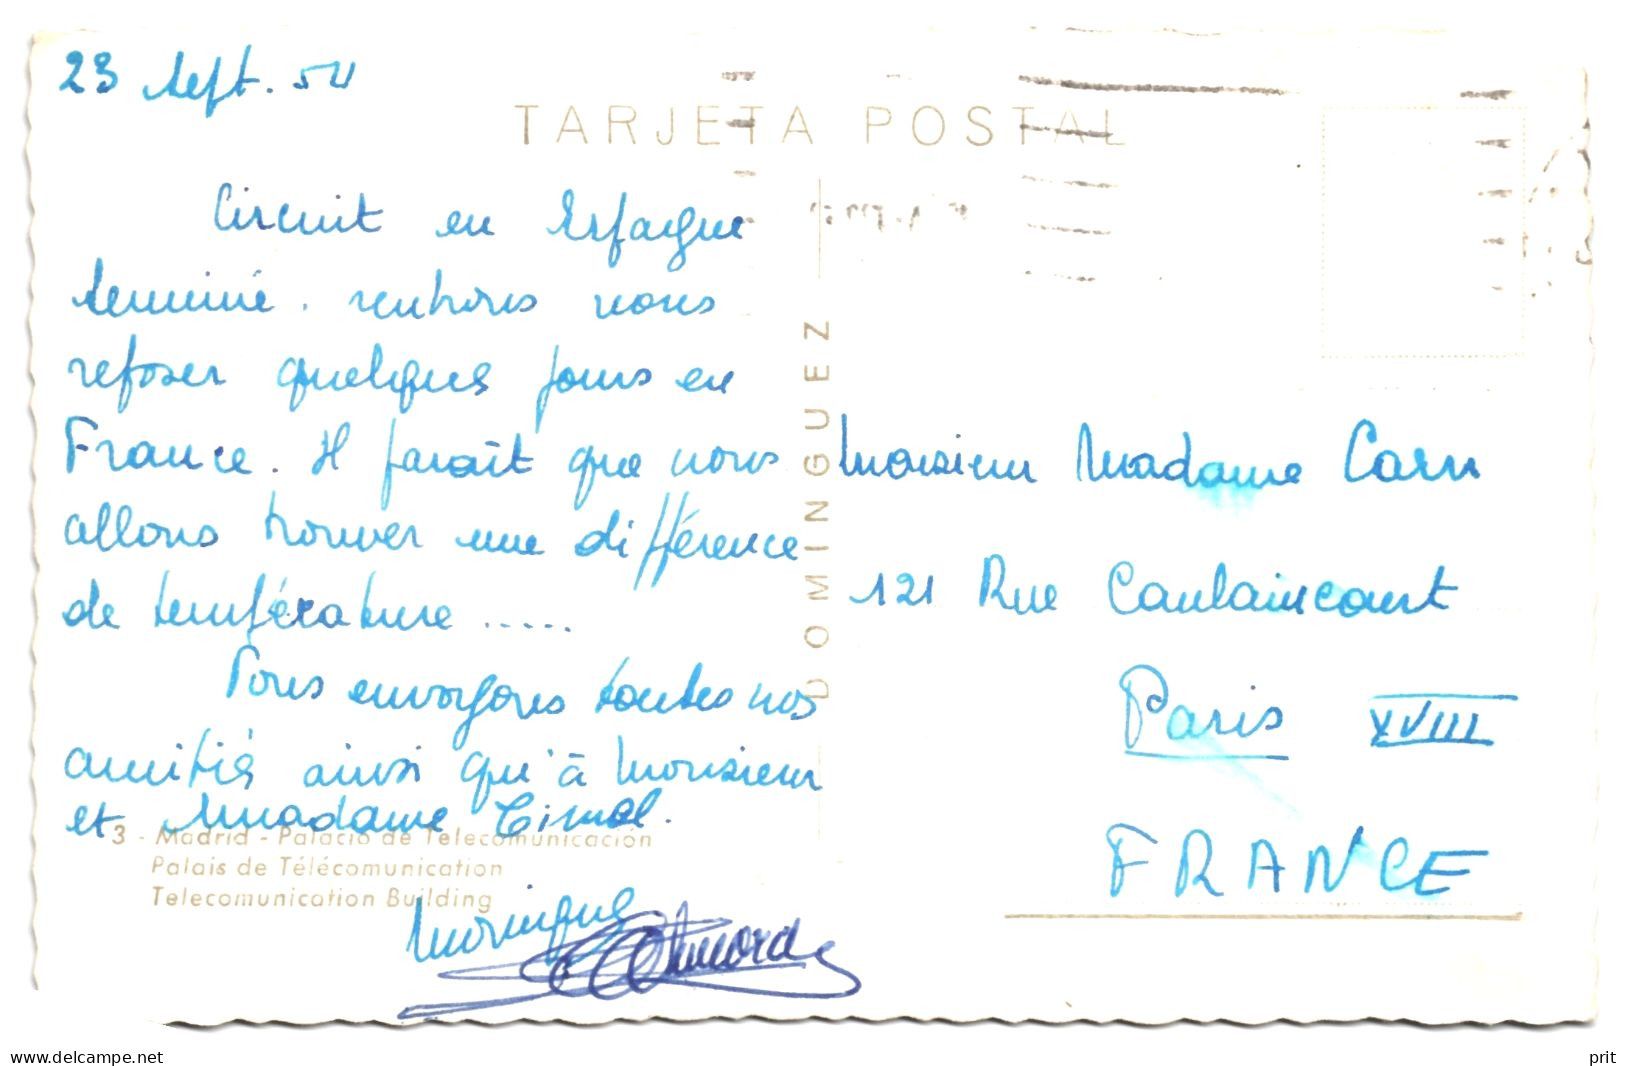 23 Sept. 54
TARJETA POSTAL
Circuit en Espagne
terminé. rentrons nous
reposer quelques jours en
France. Il paraît que nous
allons trouver une différence
de température .....
Vous envoyons toutes nos
amitiés ainsi qu'à Monsieur
et Madame
3 - Madrid - Palacio de Telecomunicación
Palais de Télécomunication
Telecomunication Building
DOMINGUEZ
Monsieur Madame Carn
121 Rue Caulaincourt
Paris XVIII
FRANCE
www.delcampe.net
prit